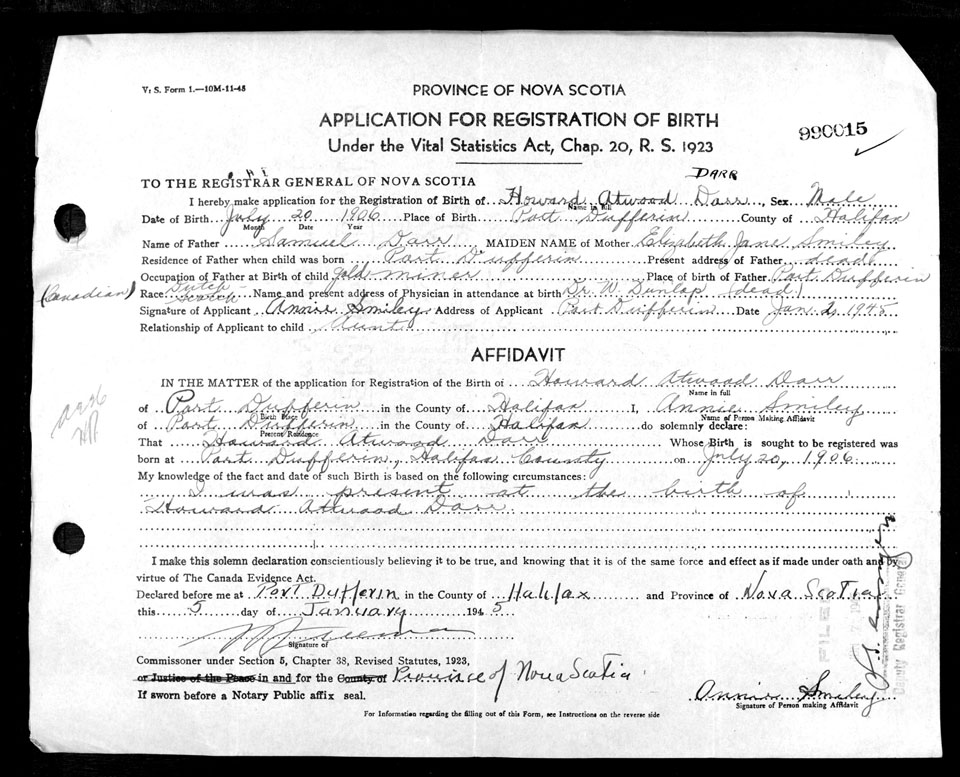 V. S. Form 1.—10M-11-43
PROVINCE OF NOVA SCOTIA
APPLICATION FOR REGISTRATION OF BIRTH
990015
Under the Vital Statistics Act, Chap. 20, R. S. 1923
DARR
TO THE REGISTRAR GENERAL OF NOVA SCOTIA
I hereby make application for the Registration of Birth of Howard Atwood Darr, Sex Male
Name in full
Date of Birth July 20 1906 Place of Birth Port Dufferin County of Halifax
Month Date Year
Name of Father Samuel Darr, MAIDEN NAME of Mother Elizabeth Jane Smiley
Residence of Father when child was born Port Dufferin Present address of Father dead
Occupation of Father at Birth of child gold miner Place of birth of Father Port Dufferin
(Canadian) Race Dutch-Scotch Name and present address of Physician in attendance at birth Dr. W. Dunlap (dead)
Signature of Applicant Annie Smiley Address of Applicant Port Dufferin Date Jan. 2, 1945
Relationship of Applicant to child Aunt
AFFIDAVIT
IN THE MATTER of the application for Registration of the Birth of Howard Atwood Darr
Name in full
of Port Dufferin in the County of Halifax I, Annie Smiley
Birth Place Name of Person Making Affidavit
of Port Dufferin in the County of Halifax do solemnly declare:
Present Residence
That Howard Atwood Darr Whose Birth is sought to be registered was
born at Port Dufferin, Halifax County on July 20, 1906
My knowledge of the fact and date of such Birth is based on the following circumstances:
I was present at the birth of
Howard Attwood Darr
I make this solemn declaration conscientiously believing it to be true, and knowing that it is of the same force and effect as if made under oath and by
virtue of The Canada Evidence Act.
Declared before me at Port Dufferin in the County of Halifax and Province of Nova Scotia
this 5 day of January 1945
Signature of
Commissoner under Section 5, Chapter 38, Revised Statutes, 1923,
or Justice of the Peace in and for the County of Province of Nova Scotia
If sworn before a Notary Public affix seal.
Annie Smiley
Signature of Person making Affidavit
For Information regarding the filling out of this Form, see Instructions on the reverse side
FILED
County Registrar General